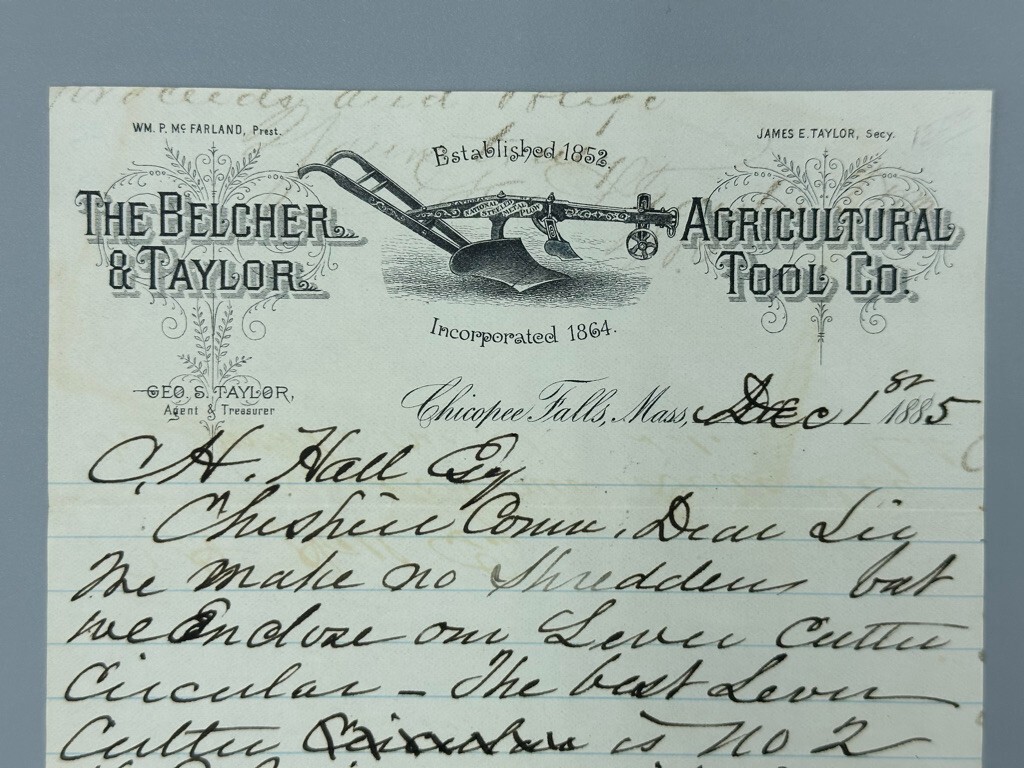 proceeds and oblige
WM. P. McFARLAND, Prest.
JAMES E. TAYLOR, Secy.
Established 1852.
THE BELCHER
& TAYLOR
NATIONAL STEELED METAL PLOW
AGRICULTURAL
TOOL CO.
Incorporated 1864.
GEO. S. TAYLOR,
Agent & Treasurer
Chicopee Falls, Mass, Dec 1st 1885
C. H. Hall Esq
Cheshire Conn. Dear Sir
We make no Shredders but
we Enclose our Lever Cutter
Circular - The best Lever
Cutter Circular is No 2